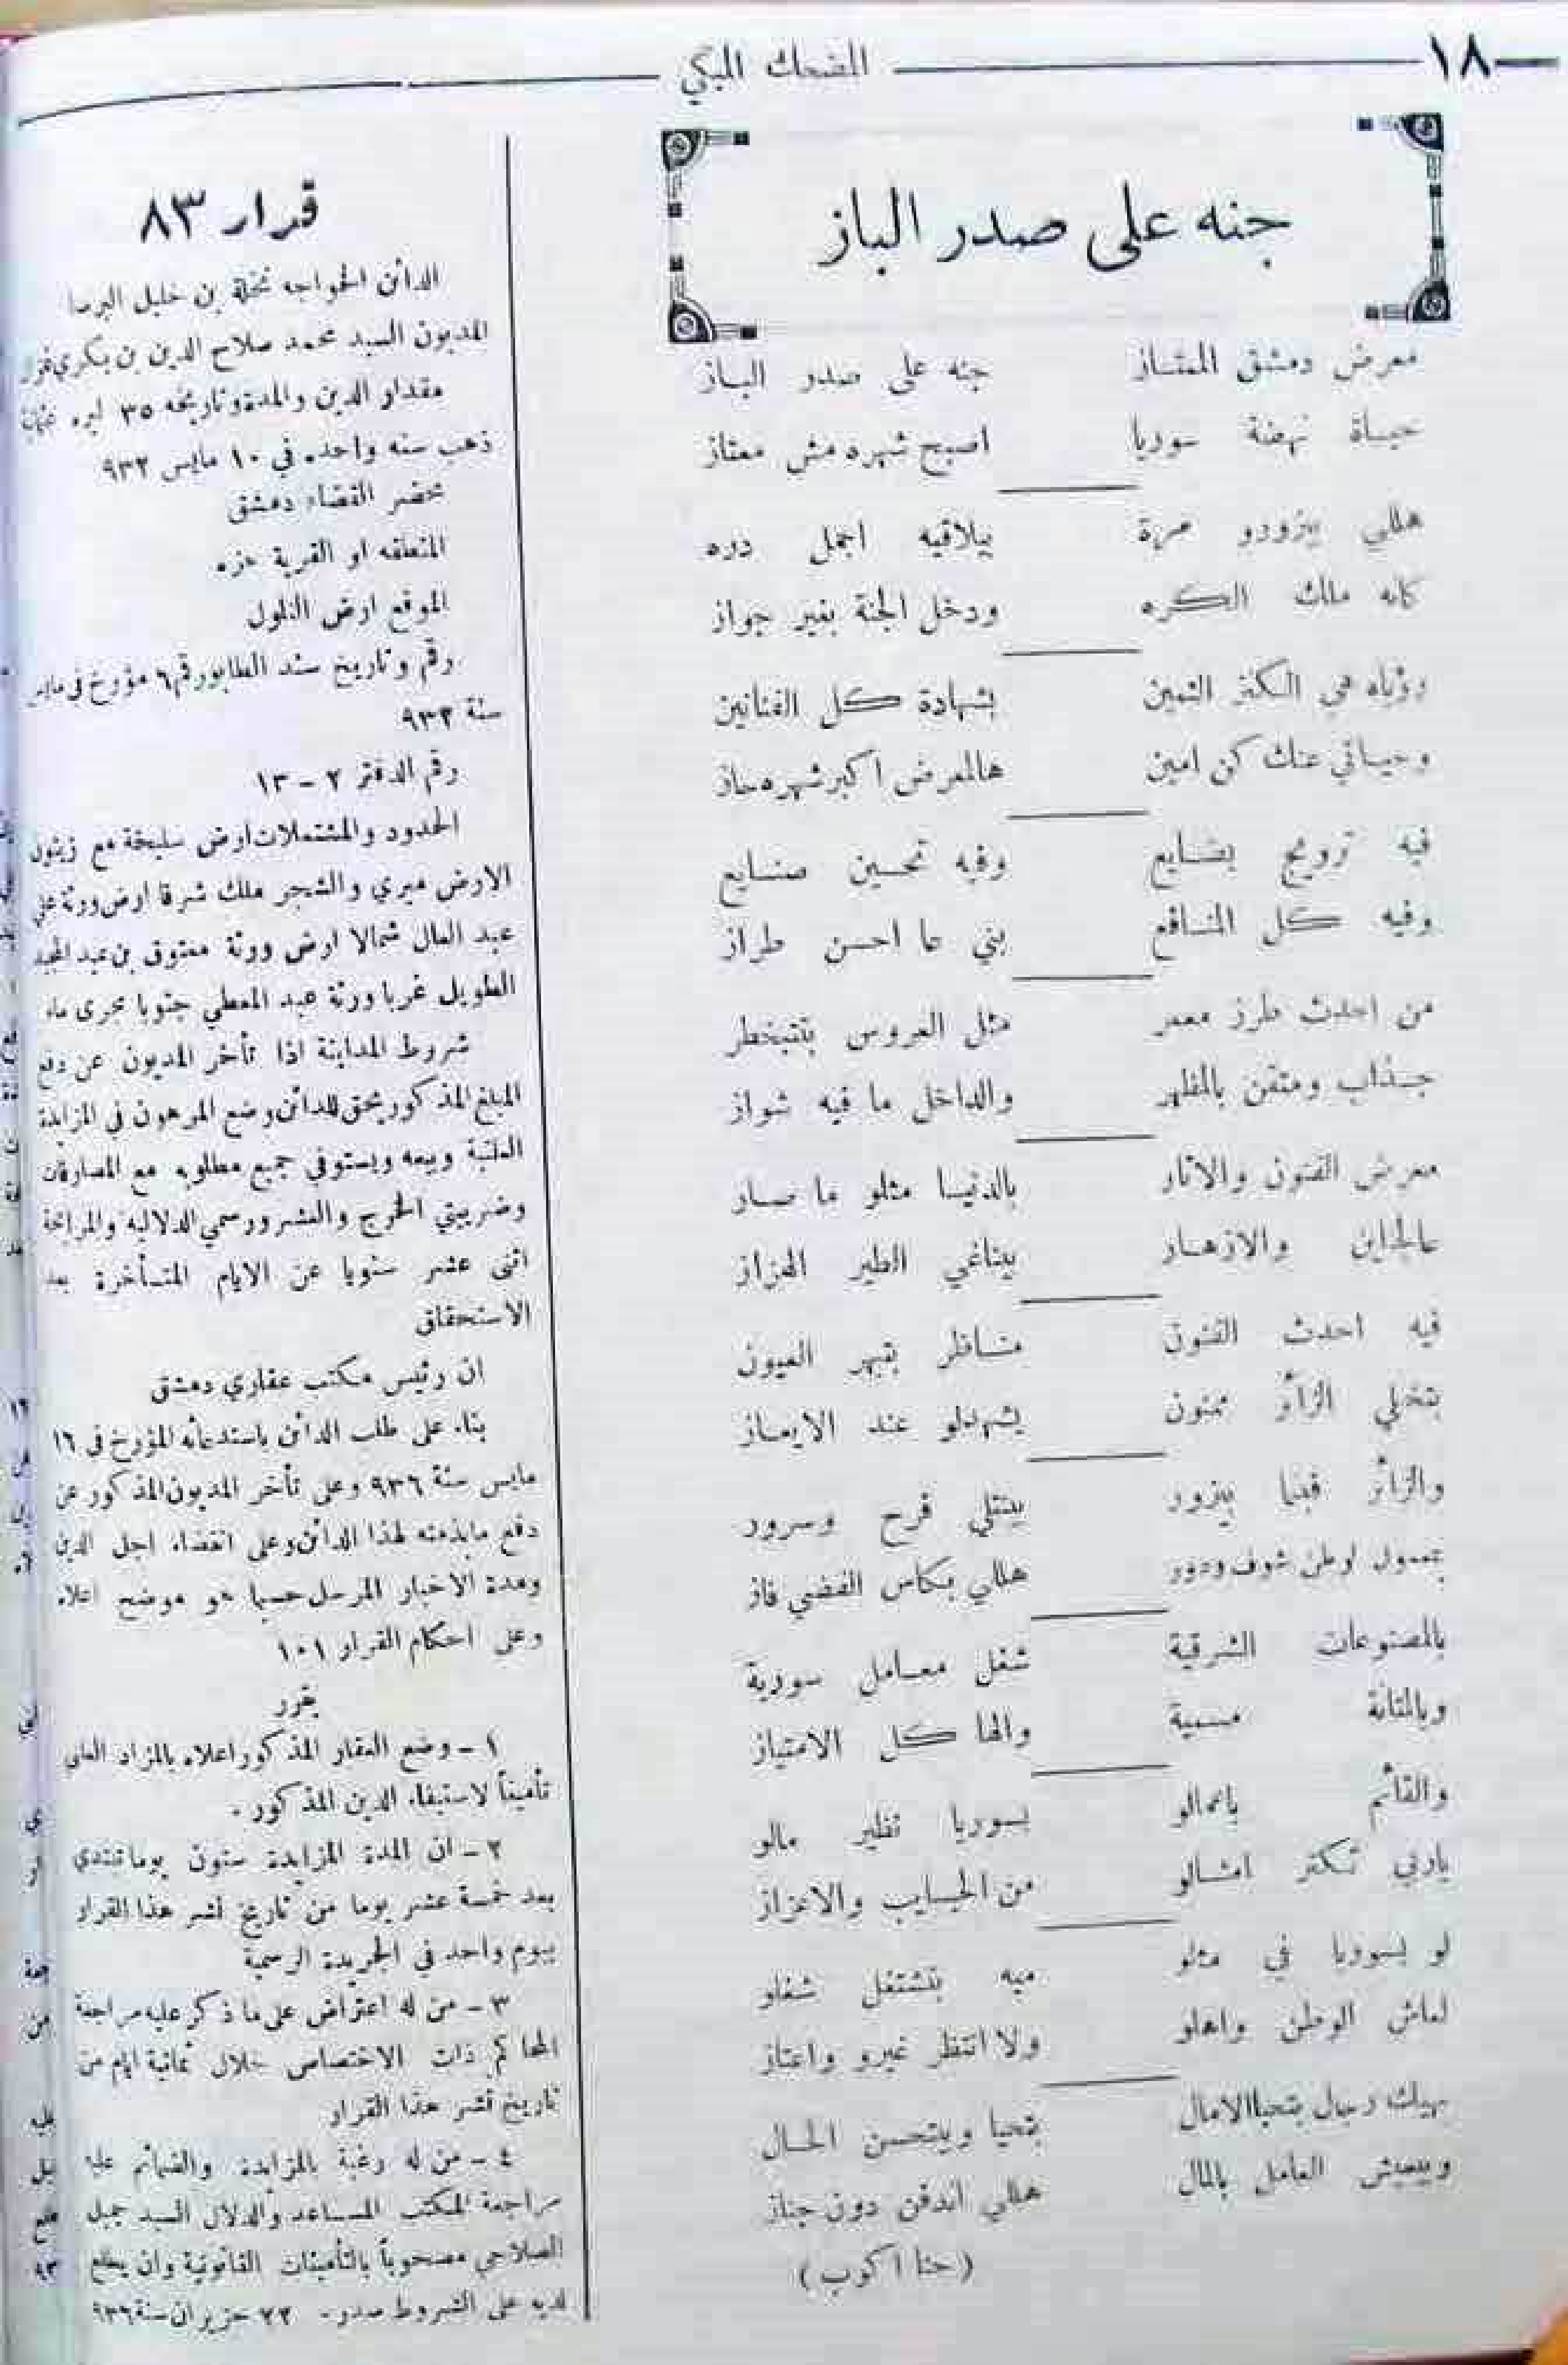 ١٨
المضحك المبكي
جنه على صدر الباز
معرض دمشق الممتاز جنه على صدر الباز
حياة نهضة سوريا اصبح شهره مش معتاز
هللي بيزورو مرة بيلاقيه اجمل دره
كانه ملك الكره ودخل الجنة بغير جواز
رؤياه هي الكنز الثمين بشهادة كل الفنانين
وحياتي عنك كن امين هالمعرض اكبر شهره حاز
فيه ترويج بضايع وفيه تحسين صنايع
وفيه كل المنافع بني عا احسن طراز
من احدث طرز معمر مثل العروس بتتبخطر
جذاب ومتقن بالمظهر والداخل ما فيه شواز
معرض الفنون والاثار بالدنيا مثلو ما صار
عالجناين والازهار بيناغي الطير الهزاز
فيه احدث الفنون مناظر بتبهر العيون
بتخلي الزائر ممنون يشهدلو عند الايعاز
والزائر فيما بيزور بيمتلي فرح وسرور
لوطن شوف ودور هللي بكاس الفضي فاز
بالمصنوعات الشرقية شغل معامل سورية
وبالمتانة مسمية والها كل الامتياز
والقائم باعمالو بسوريا نظير مالو
ياربي تكتر امثالو من الحبايب والاعزاز
لو بسوريا في مثلو ميه بتشتغل شغلو
لعاش الوطن واهلو ولا انتظر غيرو واعتاز
بهيك رجال بتحيا الامال بتحيا وبيتحسن الحال
وبيعيش العامل بالمال هللي اندفن دون جناز
( حنا اكوب )
قرار ٨٣
الدائن الخواجه نخلة بن خليل البرصا
المديون السيد محمد صلاح الدين بن بكري
مقدار الدين والمدة وتاريخه ٣٥ ليره عثمانية
ذهب سنه واحده في ١٠ مايس ٩٣٢
محضر القضاء دمشق
المنطقه او القرية حزه
الموقع ارض التلول
رقم وتاريخ سند الطابو رقم ٦ مؤرخ في مايس
سنة ٩٣٢
رقم الدفتر ٢ - ١٣
الحدود والمشتملات ارض سليخة مع زيتون
الارض ميري والشجر ملك شرقا ارض ورثة علي
عبد العال شمالا ارض ورثة معتوق بن عبد المجيد
الطويل غربا ورثة عبد المعطي جنوبا مجرى ماء
شروط المداينة اذا تأخر المديون عن دفع
المبلغ المذكور يحق للدائن وضع المرهون في المزايدة
العلنية وبيعه ويستوفي جميع مطلوبه مع المصارفات
وضريبتي الخرج والعشر ورسمي الدلاليه والمرابحة
اثنى عشر سنويا عن الايام المتأخرة بعد
الاستحقاق
ان رئيس مكتب عقاري دمشق
بناء على طلب الدائن باستدعائه المؤرخ في ١٦
مايس سنة ٩٣٦ وعلى تأخر المديون المذكور عن
دفع مابذمته لهذا الدائن وعلى انقضاء اجل الدين
ومدة الاخبار المرسل حسبما هو موضح اعلاه
وعلى احكام القرار ١٠١
يقرر
١ - وضع العقار المذكور اعلاه بالمزاد العلني
تأميناً لاستيفاء الدين المذكور .
٢ - ان المدة المزايدة ستون يوما تبتدي
بعد خمسة عشر يوما من تاريخ نشر هذا القرار
بيوم واحد في الجريدة الرسمية
٣ - من له اعتراض على ما ذكر عليه مراجعة
المحاكم ذات الاختصاص خلال ثمانية ايام من
تاريخ نشر هذا القرار
٤ - من له رغبة بالمزايدة والضمائم عليه
مراجعة المكتب المساعد والدلال السيد جميل
الصلاحي مصحوباً بالتأمينات القانونية وان يطلع
لديه على الشروط صدر . ٢٢ حزيران سنة ٩٣٦